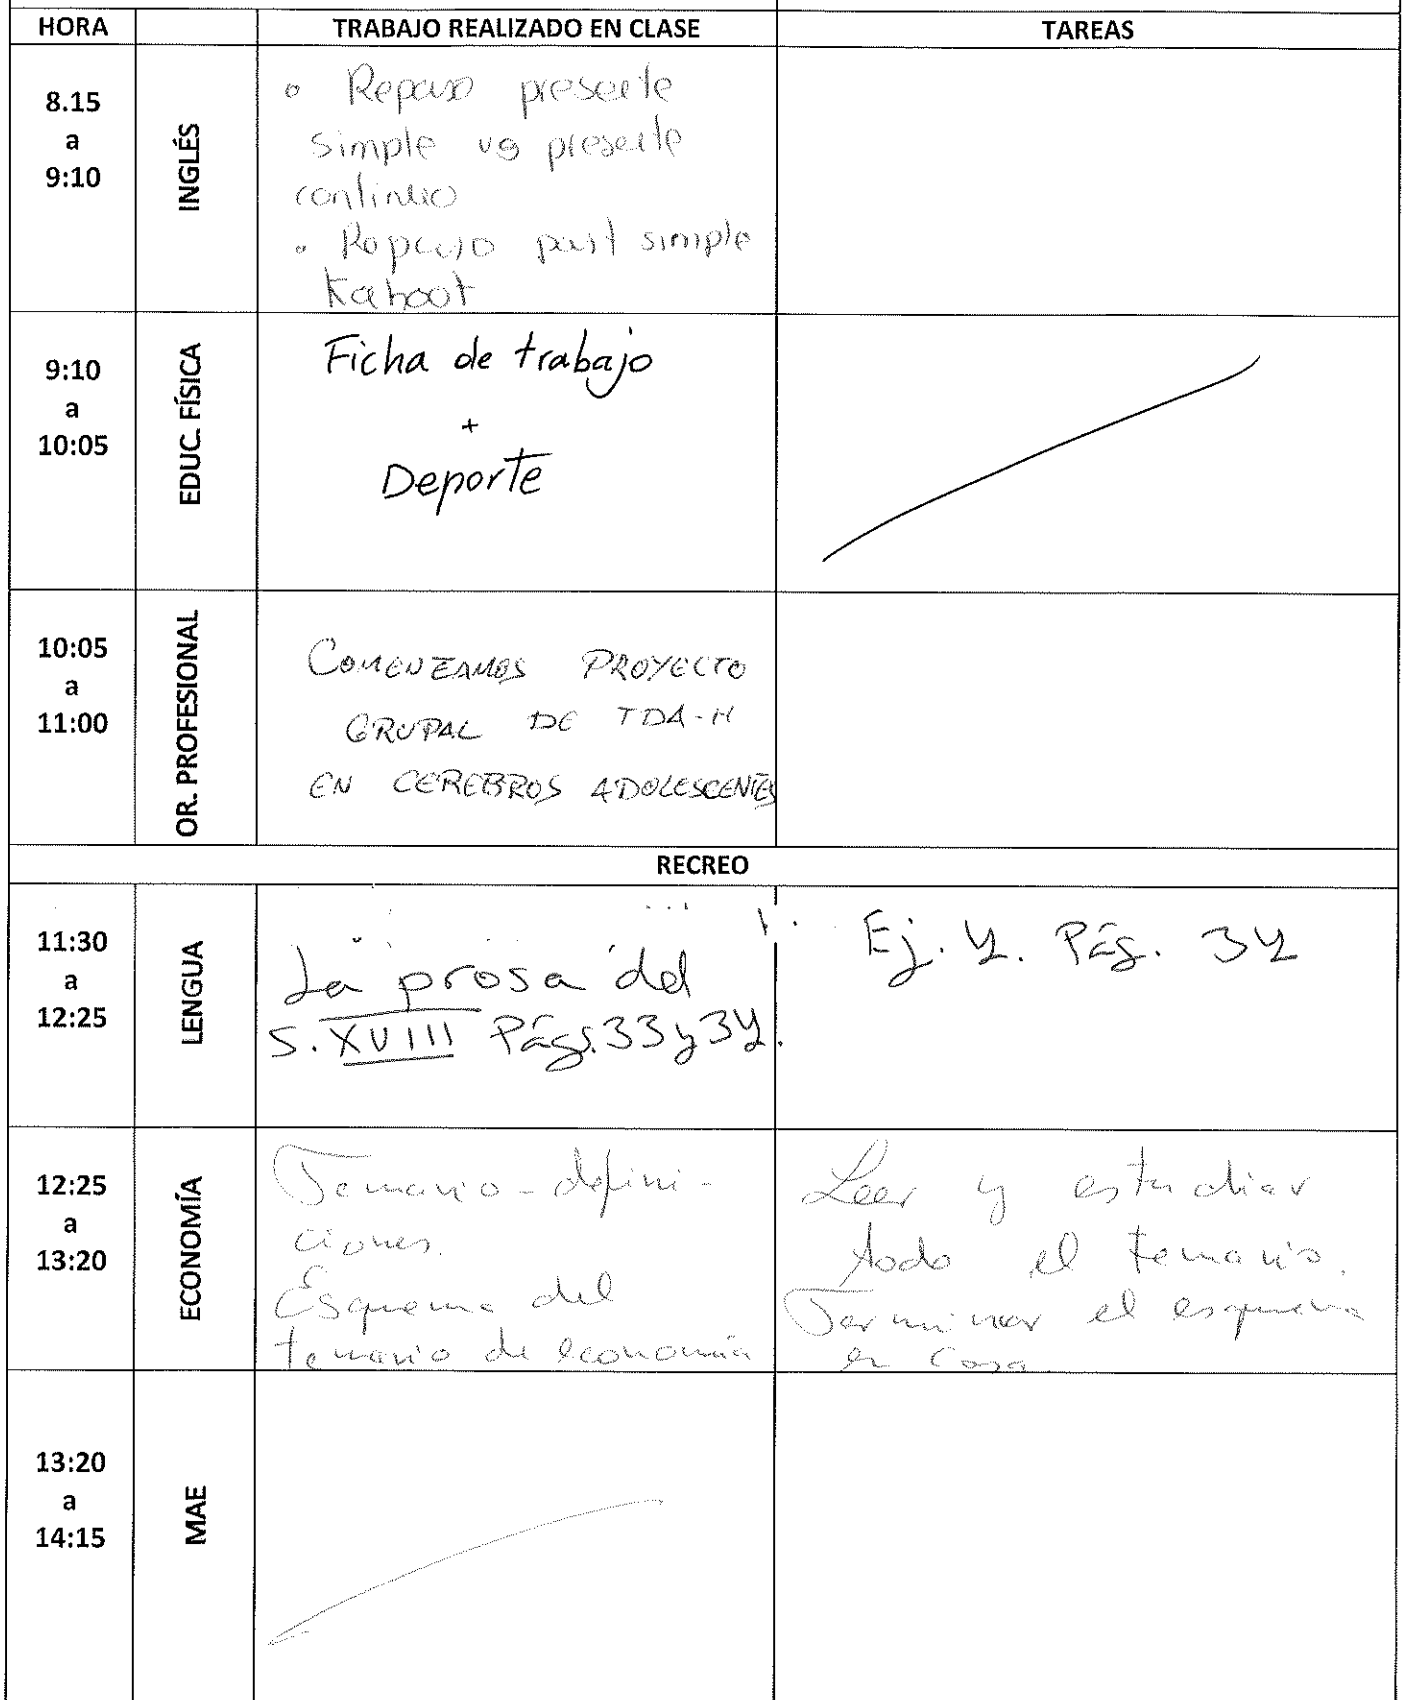 HORA TRABAJO REALIZADO EN CLASE TAREAS
8.15
a
9:10
INGLÉS
• Repaso presente
simple vs presente
continuo
• Repaso past simple
Kahoot
9:10
a
10:05
EDUC. FÍSICA
Ficha de trabajo
+
Deporte
10:05
a
11:00
OR. PROFESIONAL
COMENZAMOS PROYECTO
GRUPAL DE TDA-H
EN CEREBROS ADOLESCENTES
RECREO
11:30
a
12:25
LENGUA
La prosa del
S. XVIII Págs. 33 y 34.
Ej. 4. Pág. 34
12:25
a
13:20
ECONOMÍA
Temario - defini-
ciones.
Esquema del
temario de economía
Leer y estudiar
todo el temario.
Terminar el esquema
en casa
13:20
a
14:15
MAE